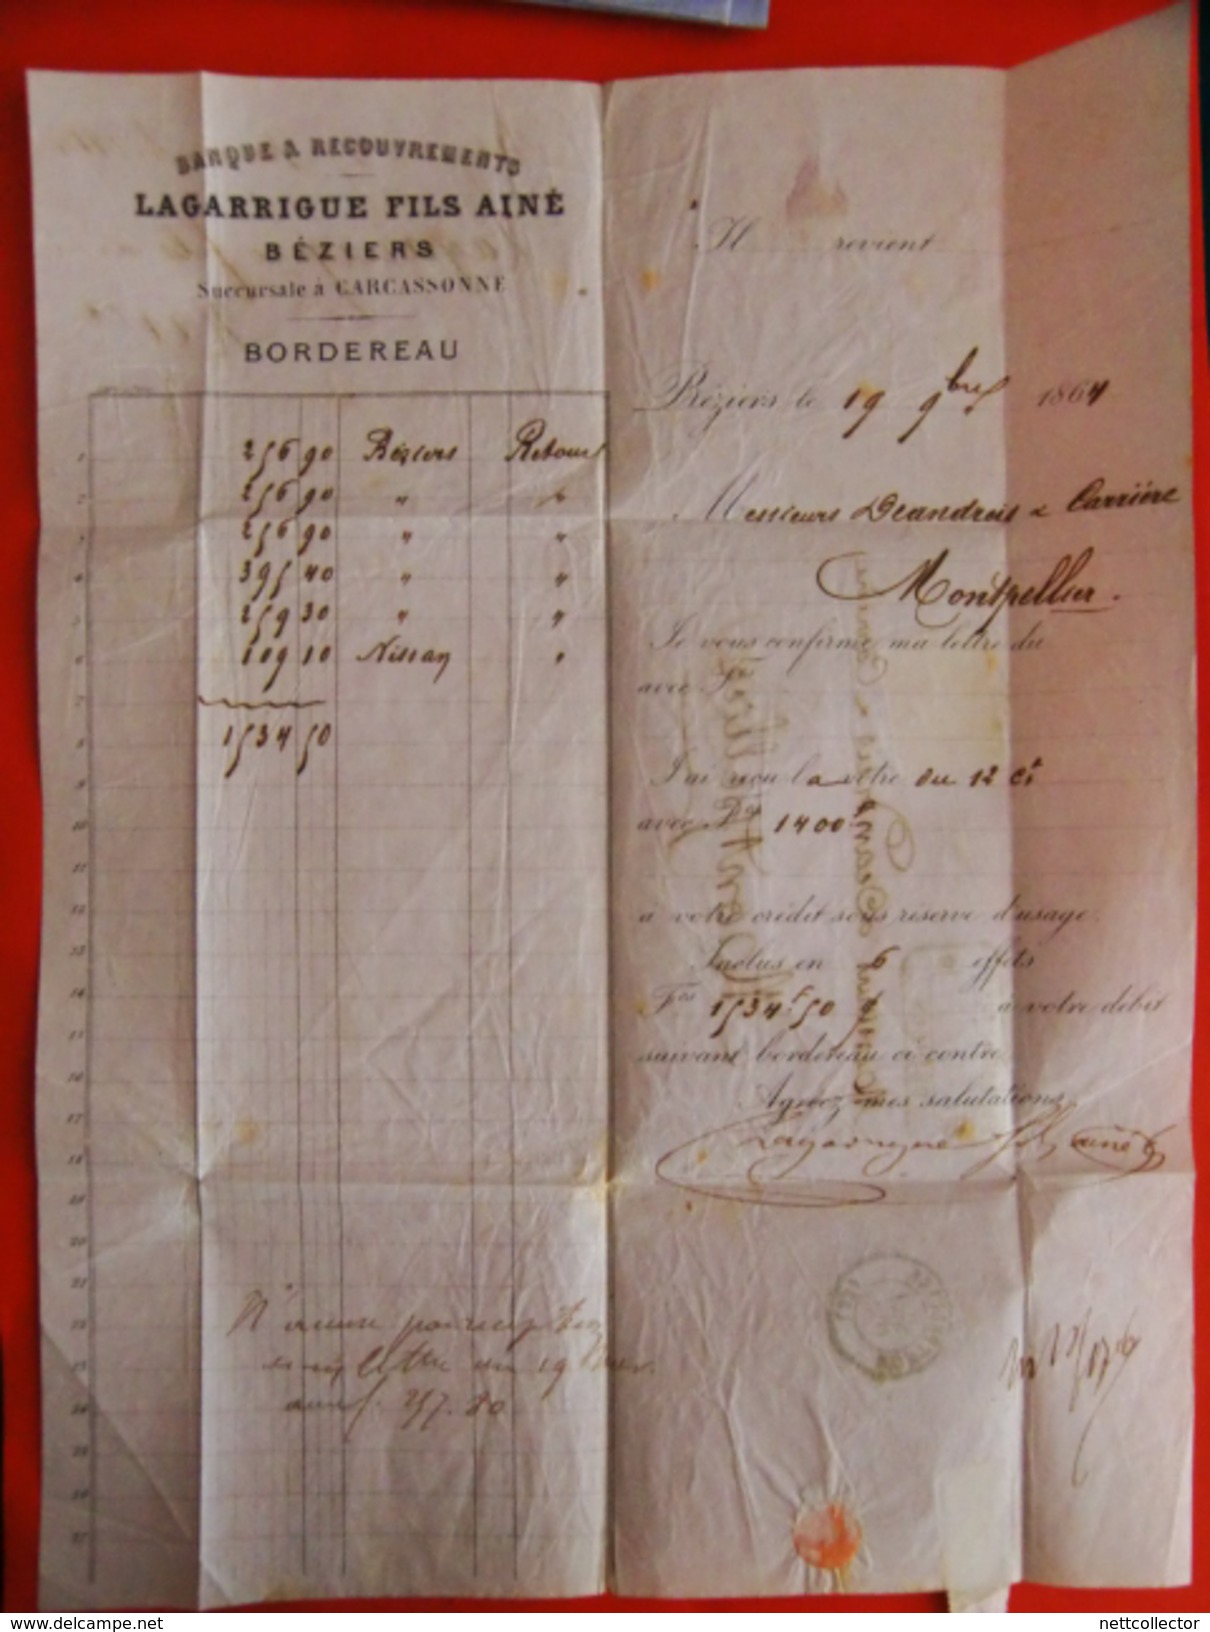 BANQUE & RECOUVREMENTS
LAGARRIGUE FILS AINÉ
BÉZIERS
Succursale à CARCASSONNE
BORDEREAU
1 256 90 Béziers Retour
2 256 90 " "
3 256 90 " "
4 395 40 " "
5 259 30 " "
6 109 10 Nissan "
7
8 1534 50
9
10
11
12
13
14
15
16
17
18
19
20
21
22
23
24
25
26
27
Il revient
Béziers le 19 9bre 1864
Messieurs Deandreis & Carrière
Montpellier.
Je vous confirme ma lettre du
avec Frs
J'ai reçu la vôtre du 12 Ct
avec Frs 1400 f
à votre crédit sous réserve d'usage.
Inclus en 6 effets
Frs 1534 f 50 à votre débit
suivant bordereau ci contre
Agréez mes salutations
Lagarrigue fils ainé
lettre du 19
257.80
delcampe.net
nettcollector